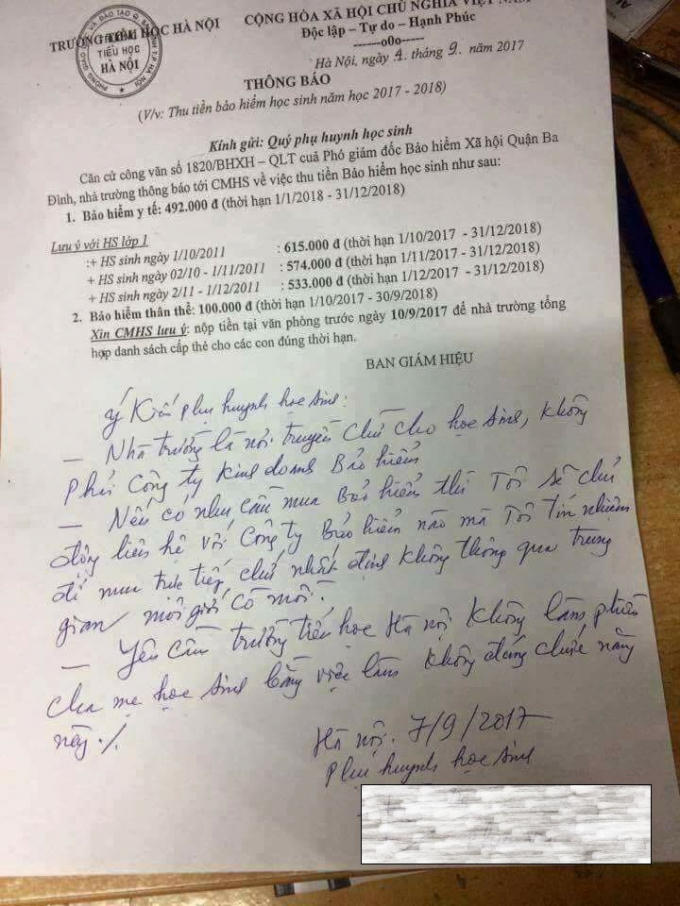 TRƯỜNG TIỂU HỌC HÀ NỘI
CỘNG HÒA XÃ HỘI CHỦ NGHĨA VIỆT NAM
Độc lập – Tự do – Hạnh Phúc
-------o0o-------
TIỂU HỌC
HÀ NỘI
Hà Nội, ngày 4 tháng 9 năm 2017
THÔNG BÁO
(V/v: Thu tiền bảo hiểm học sinh năm học 2017 - 2018)
Kính gửi: Quý phụ huynh học sinh
Căn cứ công văn số 1820/BHXH – QLT cuả Phó giám đốc Bảo hiểm Xã hội Quận Ba
Đình, nhà trường thông báo tới CMHS về việc thu tiền Bảo hiểm học sinh như sau:
1. Bảo hiểm y tế: 492.000 đ (thời hạn 1/1/2018 - 31/12/2018)
Lưu ý với HS lớp 1
:+ HS sinh ngày 1/10/2011 : 615.000 đ (thời hạn 1/10/2017 - 31/12/2018)
+ HS sinh ngày 02/10 - 1/11/2011 : 574.000 đ (thời hạn 1/11/2017 - 31/12/2018)
+ HS sinh ngày 2/11 - 1/12/2011 : 533.000 đ (thời hạn 1/12/2017 - 31/12/2018)
2. Bảo hiểm thân thể: 100.000 đ (thời hạn 1/10/2017 - 30/9/2018)
Xin CMHS lưu ý: nộp tiền tại văn phòng trước ngày 10/9/2017 để nhà trường tổng
hợp danh sách cấp thẻ cho các con đúng thời hạn.
BAN GIÁM HIỆU
Ý Kiến phụ huynh học sinh:
– Nhà trường là nơi truyền chữ cho học sinh, không
phải Công ty kinh doanh Bảo hiểm
– Nếu có nhu cầu mua Bảo hiểm thì Tôi sẽ chủ
động liên hệ với Công ty Bảo hiểm nào mà Tôi tín nhiệm
để mua trực tiếp chứ nhất định không thông qua trung
gian môi giới cò mồi.
– Yêu cầu trường tiểu học Hà nội không làm phiền
cha mẹ học sinh bằng việc làm không đúng chức năng
này ./.
Hà nội. 7/9/2017
Phụ huynh học sinh